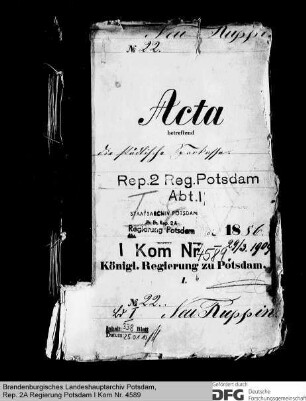 Neu Ruppin
№ 22.
Acta
betreffend
die städtische Sparkasse
Rep.2 Reg.Potsdam
Abt.I
STAATSARCHIV POTSDAM
Pr. Br. Rep. 2A
Regierung Potsdam
1886
I Kom Nr. 4589
29/3. 1909
Königl. Regierung zu Potsdam.
I.
№ 22.
I Neu Ruppin
Enthält 338 Blatt
Brandenburgisches Landeshauptarchiv Potsdam,
Rep. 2A Regierung Potsdam I Kom Nr. 4589
Gefördert durch
DFG Deutsche
Forschungsgemeinschaft